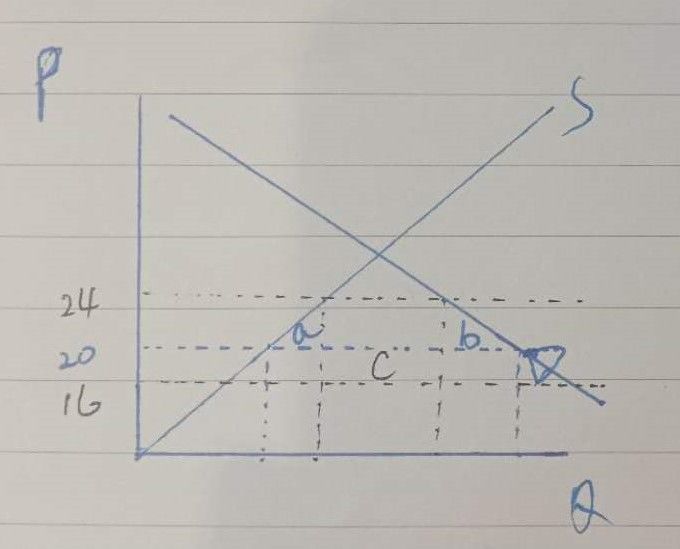 P
S
24
a
20
b
C
16
Q